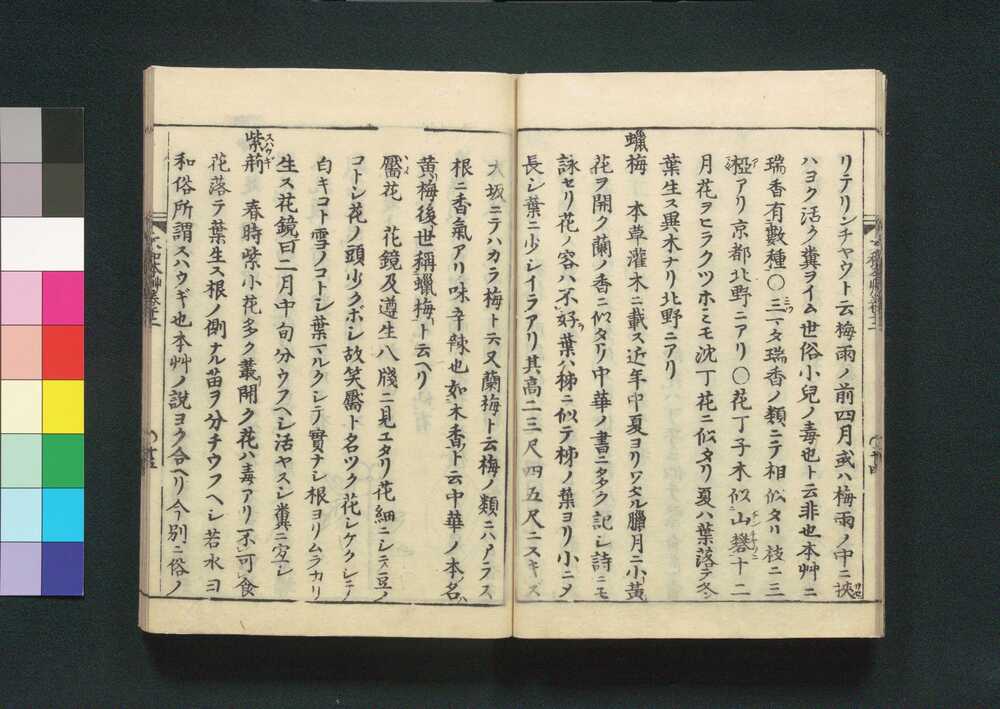 リテリンチヤウト云梅雨ノ前四月或ハ梅雨ノ中ニ挾
ハヨク活ク糞ヲイム世俗小兒ノ毒也ト云非也本艸ニ
瑞香有數種〇三ツマタ瑞香ノ類ニテ相似タリ枝ニ三
椏アリ京都北野ニアリ〇花丁子木似山礬十二
月花ヲヒラクツホミモ沈丁花ニ似タリ夏ハ葉落テ冬
葉生ス異木ナリ北野ニアリ
蠟梅 本草灌木ニ載ス近年中夏ヨリワタル臘月ニ小黃
花ヲ開ク蘭ノ香ニ似タリ中華ノ書ニ多ク記シ詩ニモ
詠セリ花ノ容ハ不好葉ハ柹ニ似テ柹ノ葉ヨリ小ニ乄
長シ葉ニ少シイラアリ其高二三尺四五尺ニスキス
大坂ニテハカラ梅ト云又蘭梅ト云梅ノ類ニハアラス
根ニ香氣アリ味辛辣也如木香ト云中華ノ本名ハ
黃梅後世稱蠟梅ト云ヘリ
靨花 花鏡及遵生八牋ニ見エタリ花細ニシテ豆ノ
コトシ花ノ頭少クボシ故笑靨ト名ツク花シケクシテ
白キコト雪ノコトシ葉マルクシテ實ナシ根ヨリムラカリ
生ス花鏡曰二月中旬分ウフヘシ活ヤスシ糞ニ宜シ
紫荊 スハウギ 春時紫小花多ク叢開ク花ハ毒アリ不可食
花落テ葉生ス根ノ側ナル苗ヲ分チウフヘシ若水ヨ
和俗所謂スハウギ也本艸ノ說ヨク合ヘリ今別ニ俗ノ